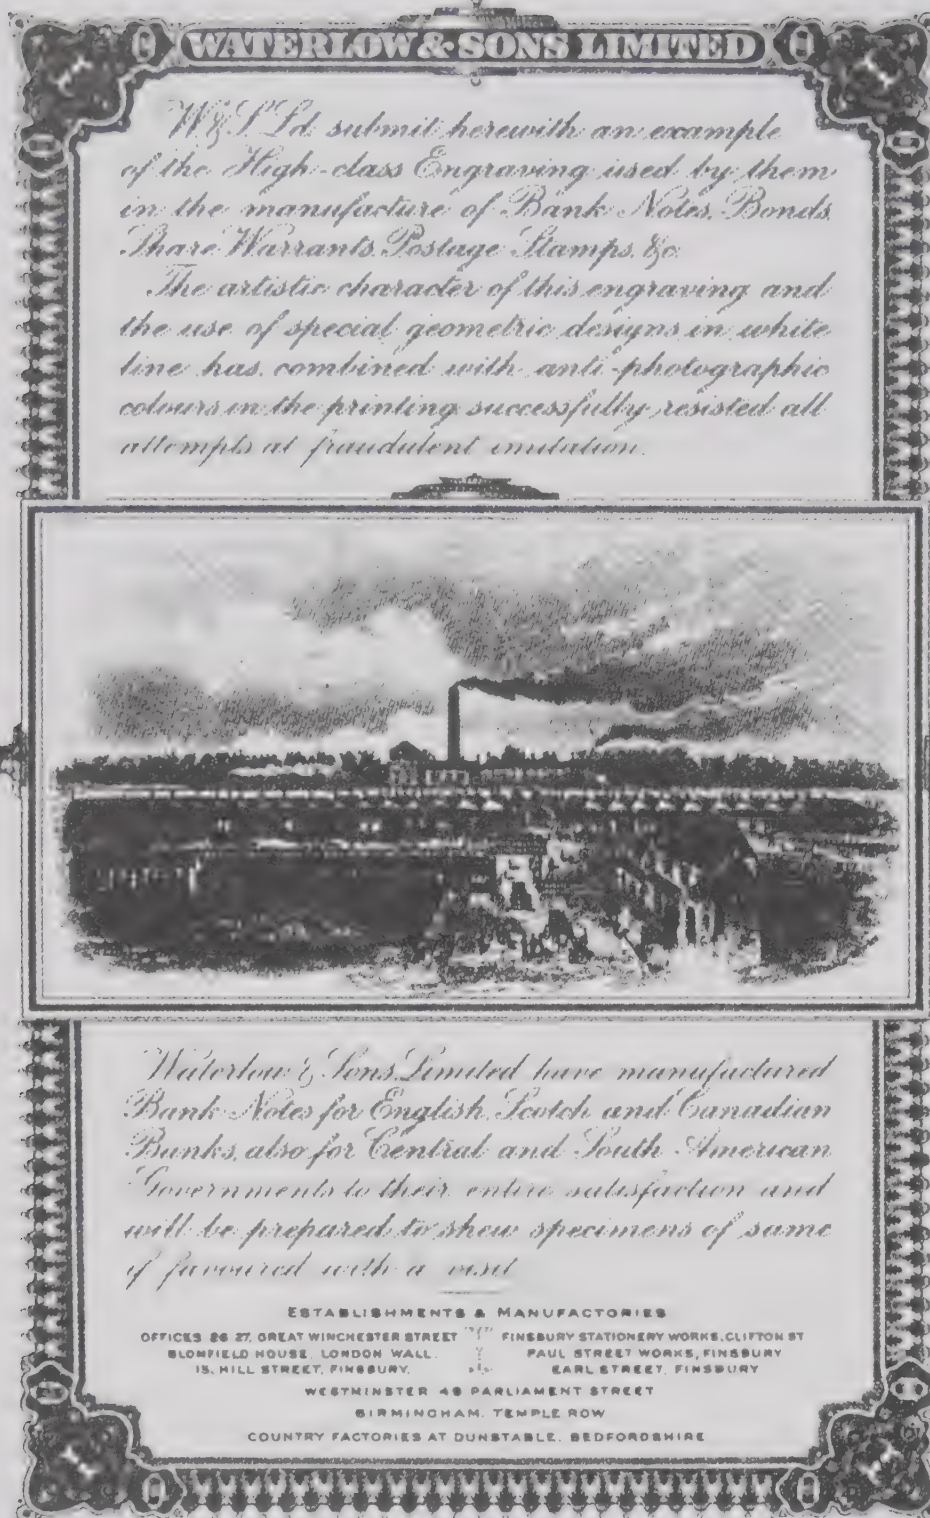 WATERLOW & SONS LIMITED
W & S Ld submit herewith an example
of the High-class Engraving used by them
in the manufacture of Bank Notes, Bonds,
Share Warrants, Postage Stamps, &c.
The artistic character of this engraving and
the use of special geometric designs in white
line has, combined with anti-photographic
colours in the printing successfully resisted all
attempts at fraudulent imitation.
Waterlow & Sons Limited have manufactured
Bank Notes for English, Scotch and Canadian
Banks, also for Central and South American
Governments to their entire satisfaction and
will be prepared to shew specimens of same
if favoured with a visit
ESTABLISHMENTS & MANUFACTORIES
OFFICES 26 27, GREAT WINCHESTER STREET
BLOMFIELD HOUSE, LONDON WALL.
15, HILL STREET, FINSBURY.
FINSBURY STATIONERY WORKS, CLIFTON ST
PAUL STREET WORKS, FINSBURY
EARL STREET, FINSBURY
WESTMINSTER 49 PARLIAMENT STREET
BIRMINGHAM, TEMPLE ROW
COUNTRY FACTORIES AT DUNSTABLE, BEDFORDSHIRE